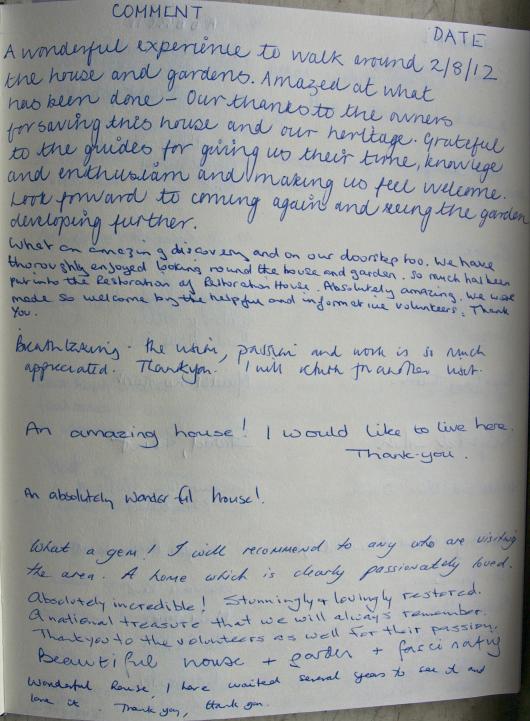 COMMENT
DATE
A wonderful experience to walk around 2/8/12
the house and gardens. Amazed at what
has been done - Our thanks to the owners
for saving this house and our heritage. Grateful
to the guides for giving us their time, knowlege
and enthusiasm and making us feel welcome.
Look forward to coming again and seeing the garden
developing further.
What an amazing discovery and on our doorstep too. We have
thoroughly enjoyed looking round the house and garden. So much has been
put into the Restoration of Restoration House. Absolutely amazing. We were
made so welcome by the helpful and informative volunteers. Thank
You.
Breathtaking - the vision, passion and work is so much
appreciated. Thankyou. I will return for another visit.
An amazing house! I would like to live here.
Thank-you.
An absolutely wonderful house!
What a gem! I will recommend to any who are visiting
the area. A home which is clearly passionately loved.
Absolutely incredible! Stunningly & lovingly restored.
A national treasure that we will always remember.
Thankyou to the volunteers as well for their passion.
Beautiful house + garden + fascinating
Wonderful house. I have waited several years to see it and
love it. Thank you, thank you.